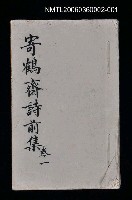 NMTL20060360002-001
寄鶴齋詩前集卷一